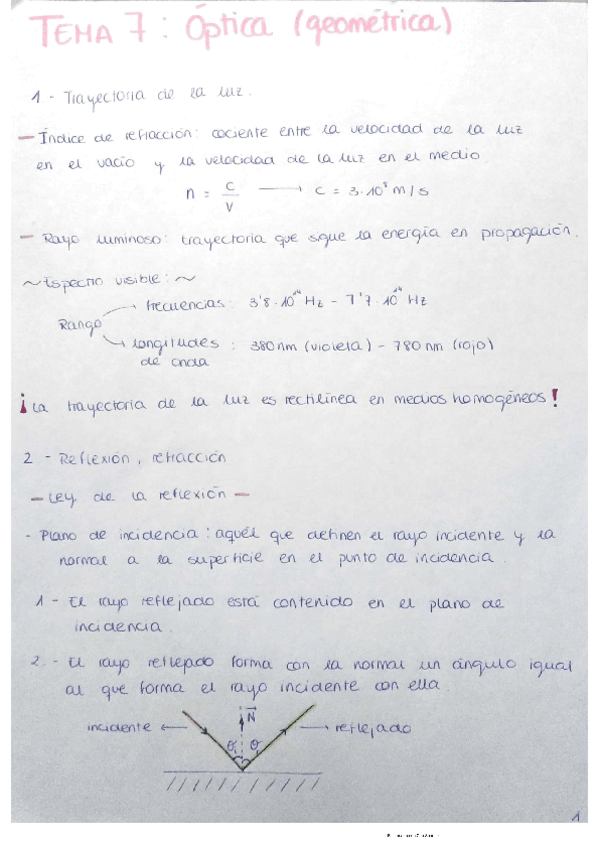 TEMA 7: Óptica (geométrica)
1 - Trayectoria de la luz.
- Índice de refracción: cociente entre la velocidad de la luz
en el vacío y la velocidad de la luz en el medio.
n = c/v → c = 3·10⁸ m/s
- Rayo luminoso: trayectoria que sigue la energía en propagación.
~Espectro visible:~
Rango
frecuencias: 3'8·10¹⁴ Hz - 7'7·10¹⁴ Hz
longitudes de onda: 380nm (violeta) - 780nm (rojo)
¡La trayectoria de la luz es rectilínea en medios homogéneos!
2 - Reflexión, refracción
- Ley de la reflexión -
- Plano de incidencia: aquél que definen el rayo incidente y la
normal a la superficie en el punto de incidencia.
1 - El rayo reflejado está contenido en el plano de
incidencia.
2. - El rayo reflejado forma con la normal un ángulo igual
al que forma el rayo incidente con ella.
incidente ← N → reflejado
θ θ
1